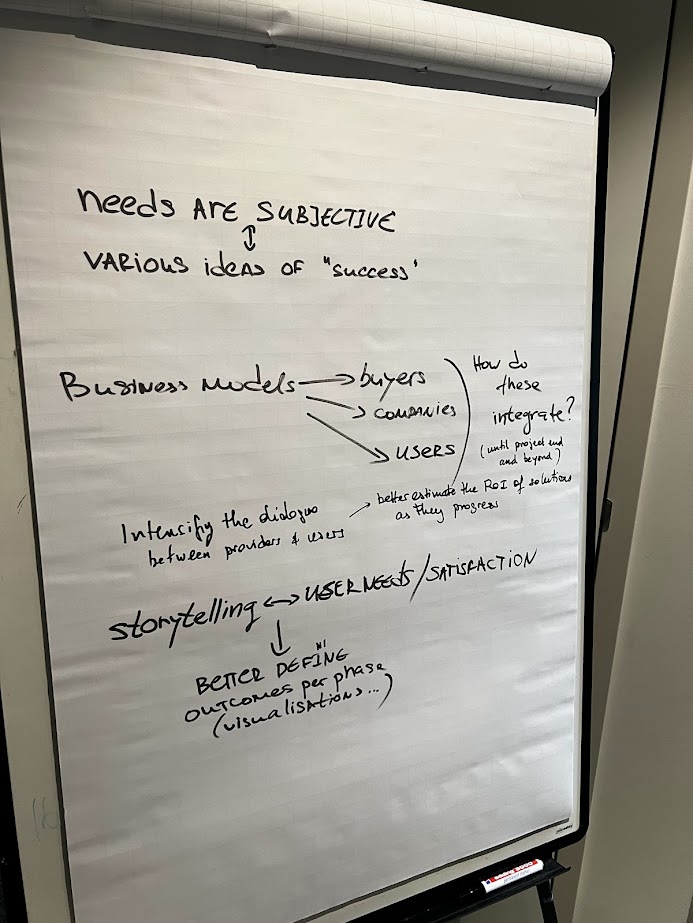 needs ARE SUBJECTIVE
↕
VARIOUS ideas OF "success"
Business Models → buyers
→ COMPANIES
→ USERS
How do
these
integrate?
(until project end
and beyond)
Intensify the dialogue
between providers & users
→ better estimate the RoI of solutions
as they progress
storytelling ↔ USER NEEDS/SATISFACTION
↓
BETTER DEFINE
OUTCOMES per phase
(visualisations...)